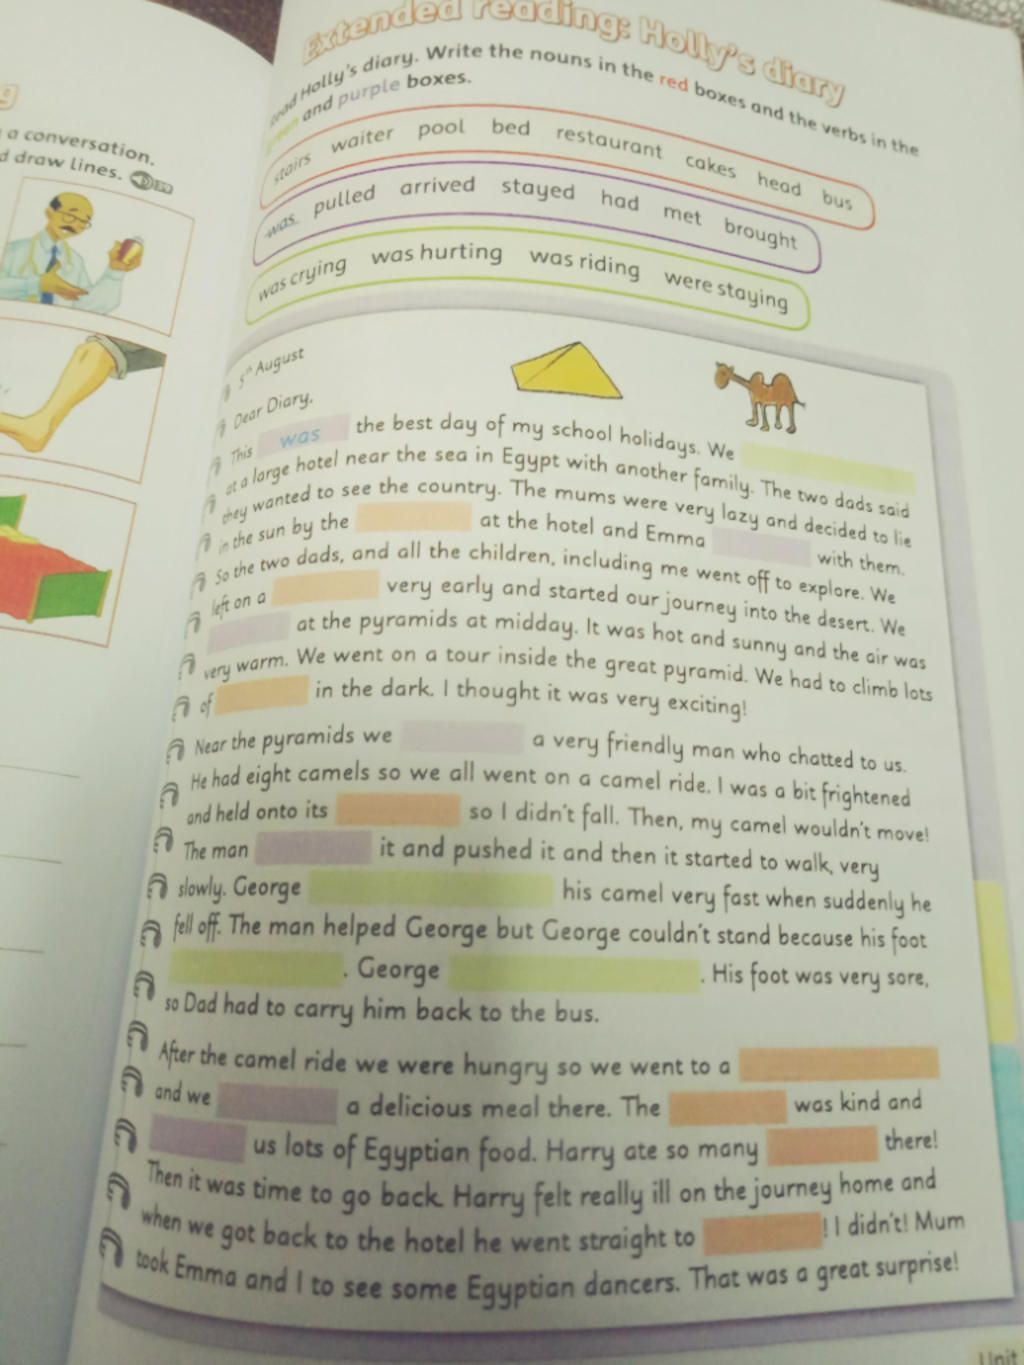 g
a conversation.
d draw lines. 39
Extended reading: Holly's diary
Read Holly's diary. Write the nouns in the red boxes and the verbs in the
green and purple boxes.
stairs waiter pool bed restaurant cakes head bus
was pulled arrived stayed had met brought
was crying was hurting was riding were staying
5th August
Dear Diary,
This was the best day of my school holidays. We
at a large hotel near the sea in Egypt with another family. The two dads said
they wanted to see the country. The mums were very lazy and decided to lie
in the sun by the at the hotel and Emma with them.
So the two dads, and all the children, including me went off to explore. We
left on a very early and started our journey into the desert. We
at the pyramids at midday. It was hot and sunny and the air was
very warm. We went on a tour inside the great pyramid. We had to climb lots
of in the dark. I thought it was very exciting!
Near the pyramids we a very friendly man who chatted to us.
He had eight camels so we all went on a camel ride. I was a bit frightened
and held onto its so I didn't fall. Then, my camel wouldn't move!
The man it and pushed it and then it started to walk, very
slowly. George his camel very fast when suddenly he
fell off. The man helped George but George couldn't stand because his foot
. George . His foot was very sore,
so Dad had to carry him back to the bus.
After the camel ride we were hungry so we went to a
and we a delicious meal there. The was kind and
us lots of Egyptian food. Harry ate so many there!
Then it was time to go back. Harry felt really ill on the journey home and
when we got back to the hotel he went straight to ! I didn't! Mum
took Emma and I to see some Egyptian dancers. That was a great surprise!
Unit